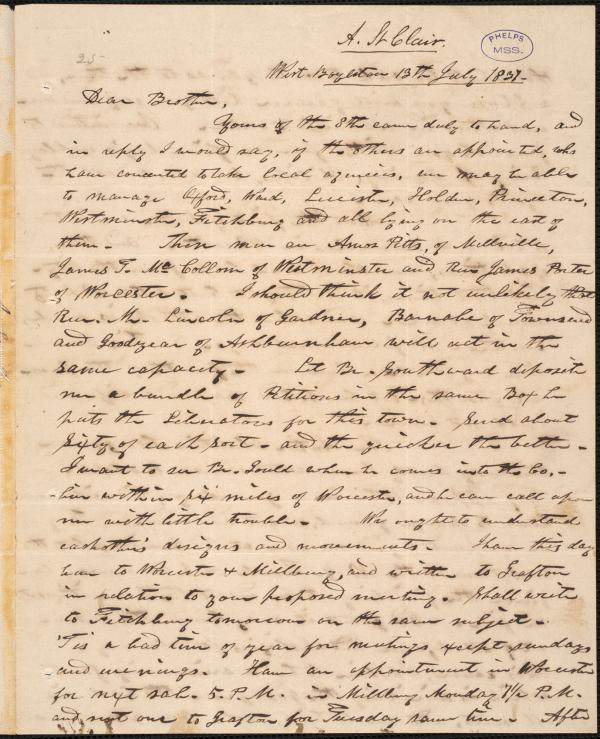 25
A. St Clair.
PHELPS
MSS.
West-Boylston 13th July 1837-
Dear Brother,
Yours of the 8th came duly to hand, and
in reply I would say, if the others are appointed, who
have consented to take local agencies, we may be able
to manage Oxford, Ward, Leicester, Holden, Princeton,
Westminster, Fitchburg and all lying on the east of
them. Them men are Amos Pitts, of Millville,
James T. McCollom of Westminster and Rev James Porter
of Worcester. I should think it not unlikely that
Rev. Mr. Lincoln of Gardner, Barnabe of Townsend
and Goodyear of Ashburnham will act in the
same capacity- Let Br. Southward deposite
me a bundle of Petitions in the same Box he
puts the Liberators for this town. Send about
sixty of each sort- and the quicker the better-
I want to see Br. Gould when he comes into the Co,-
live within six miles of Worcester, and he can call upon
me with little trouble- We ought to understand
each other's designs and movements- I have this day
been to Worcester & Millbury, and written to Grafton
in relation to your proposed meeting. Shall write
to Fitchburg tomorrow on the same subject-
'Tis a bad time of year for meetings xcept sundays
and evenings. Have an appointment in Worcester
for next sab. 5. P.M. in Millbury Monday 7½ P.M.
and sent one to Grafton for Tuesday same time- After